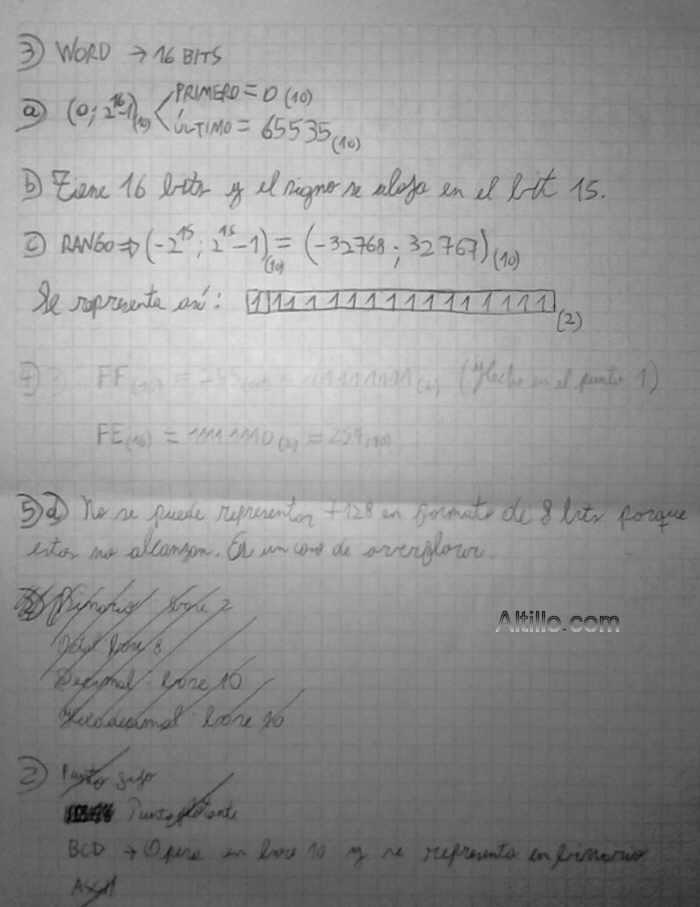 3) WORD → 16 BITS
a) (0; 2^16-1)(10) PRIMERO = 0 (10)
ÚLTIMO = 65535 (10)
b) Tiene 16 bits y el signo se aloja en el bit 15.
c) RANGO ⇒ (-2^15; 2^15-1)(10) = (-32768; 32767)(10)
Se representa así: 1111111111111111 (2)
4) FF(16) = 255(10) = 11111111(2) (Hecho en el punto 1)
FE(16) = 1111110(2) = 254(10)
5) d) No se puede representar +128 en formato de 8 bits porque
estos no alcanzan. Es un caso de overflow.
Altillo.com
Binario base 2
Octal base 8
Decimal base 10
Hexadecimal base 10
2) Punto fijo
Punto flotante
BCD → Opera en base 10 y se representa en binario
ASCII